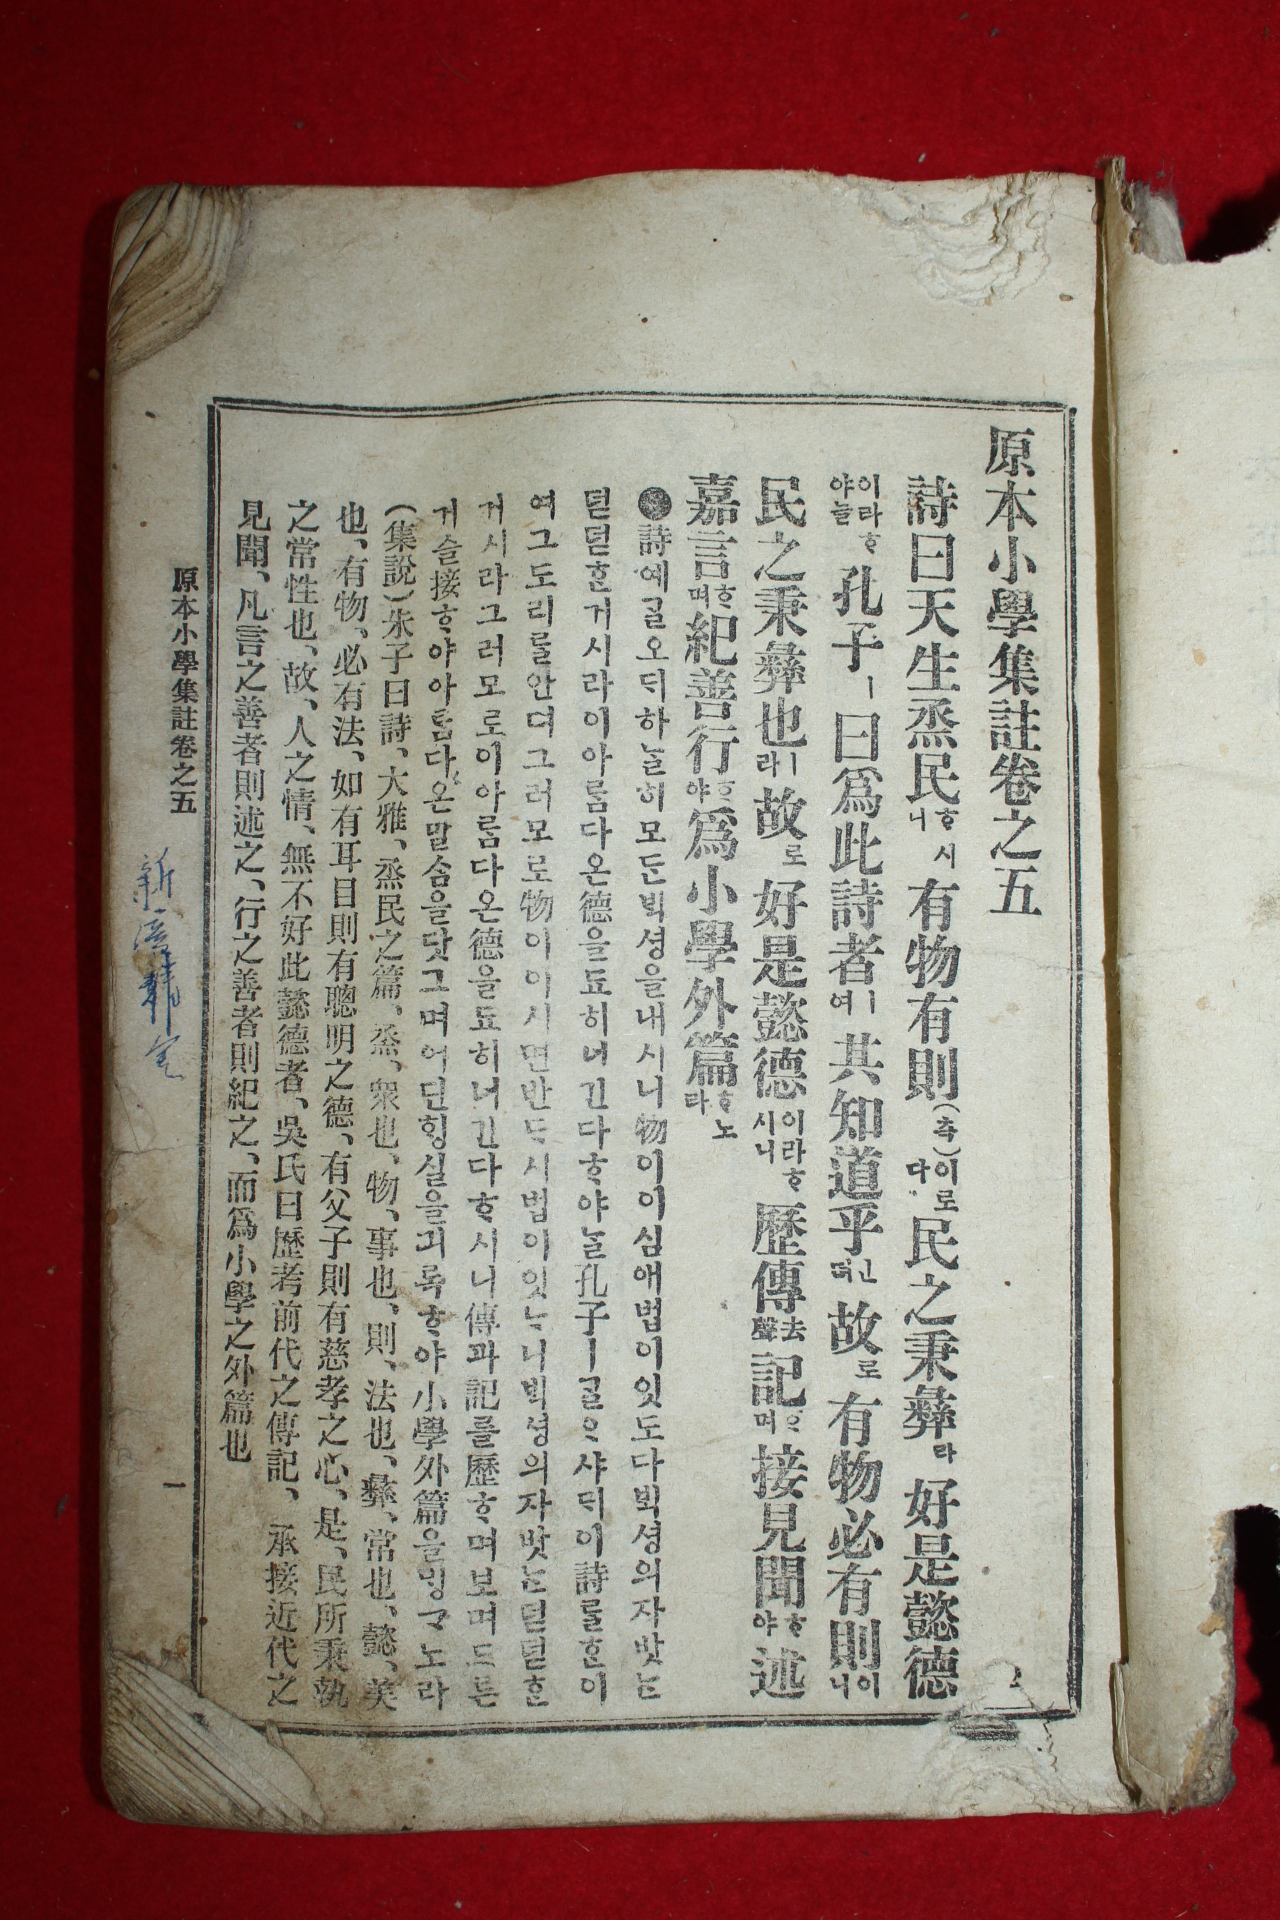 原本小學集註卷之五
詩曰天生烝民ᄒᆞ시니有物有則(측)이로다民之秉彝라好是懿德
이라ᄒᆞ야ᄂᆞᆯ孔子ㅣ曰爲此詩者ㅣ여共知道乎ᅟᅵᆫ뎌故로有物必有則이니
民之秉彝也ㅣ라故로好是懿德이라ᄒᆞ시니歷傳去聲記ᄒᆞ며接見聞ᄒᆞ야述
嘉言ᄒᆞ며紀善行ᄒᆞ야爲小學外篇ᄒᆞ노라
詩예ᄀᆞᆯ오ᄃᆡ하ᄂᆞᆯ히모ᄃᆞᆫᄇᆡᆨ셩을내시니物이이심애법이잇도다ᄇᆡᆨ셩의자밧ᄂᆞᆫ
덛덛ᄒᆞᆫ거시라이아ᄅᆞᆷ다온德을됴히녀긴다ᄒᆞ야ᄂᆞᆯ孔子ㅣᄀᆞᆯᄋᆞ샤ᄃᆡ이詩ᄅᆞᆯᄒᆞᆫ이
여그도리ᄅᆞᆯ안뎌그러모로物이이시면반ᄃᆞ시법이잇ᄂᆞ니ᄇᆡᆨ셩의자밧ᄂᆞᆫ덛덛ᄒᆞᆫ
거시라그러모로이아ᄅᆞᆷ다온德을됴히녀긴다ᄒᆞ시니傳과記ᄅᆞᆯ歷ᄒᆞ며보며드ᄅᆞᆫ
거슬接ᄒᆞ야아ᄅᆞᆷ다온말ᄉᆞᆷ을닷그며어딘ᄒᆡᆼ실을긔록ᄒᆞ야小學外篇을ᄆᆡᆼᄀᆞ노라
(集說)朱子曰詩、大雅、烝民之篇、烝、衆也、物、事也、則、法也、彝、常也、懿、美
也、有物、必有法、如有耳目則有聰明之德、有父子則有慈孝之心、是、民所秉執
之常性也、故、人之情、無不好此懿德者、吳氏曰歷考前代之傳記、承接近代之
見聞、凡言之善者則述之、行之善者則紀之、而爲小學之外篇也
原本小學集註卷之五 一